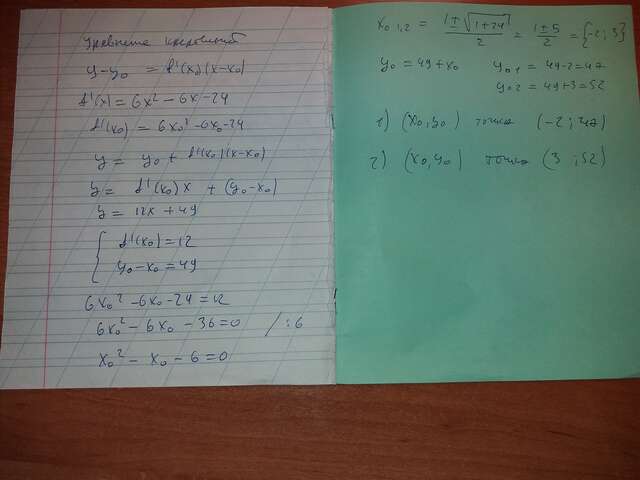 Уравнение касательной
y-y₀ = f'(x₀)(x-x₀)
f'(x) = 6x²-6x-24
f'(x₀) = 6x₀²-6x₀-24
y = y₀ + f'(x₀)(x-x₀)
y = f'(x₀)x + (y₀-x₀)
y = 12x + 49
{ f'(x₀) = 12
y₀-x₀ = 49
6x₀²-6x₀-24 = 12
6x₀²-6x₀-36=0 /:6
x₀²-x₀-6=0
x₀ 1,2 = (1±√(1+24))/2 = (1±5)/2 = {-2; 3}
y₀ = 49+x₀ y₀₁ = 49-2=47
y₀₂ = 49+3=52
1) (x₀, y₀) точка (-2; 47)
2) (x₀, y₀) точка (3; 52)